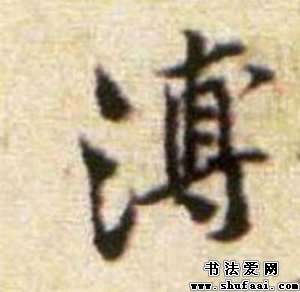 溥
书法爱网
www.shufaai.com